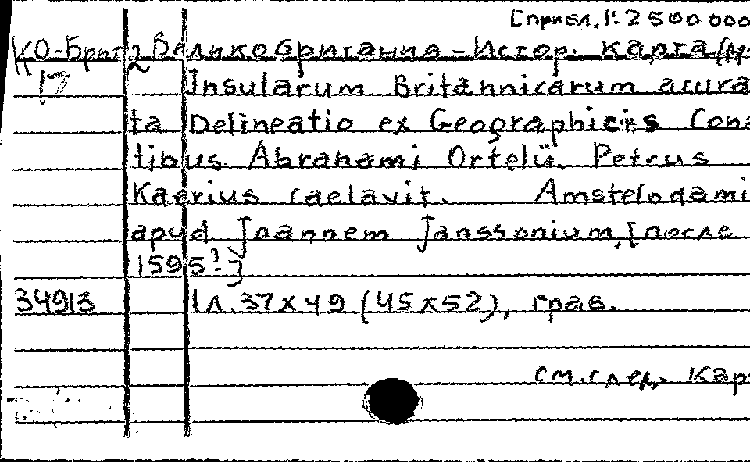 [прибл. 1:2 500 000
КО-Брит Великобритания - Истор. карта
17 2 Insularum Britannicarum acura
ta Delineatio ex Geographicis Cona
tibus Abrahami Ortelii. Petrus
Kaerius caelavit. Amstelodami
apud Joannem Janssonium, [после
1595?]
34913 1 л. 37х49 (45х52), грав.
см. след. карт